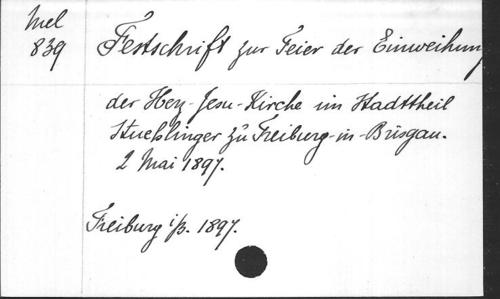 Mel
839
Festschrift zur Feier der Einweihung
der Herz-Jesu-Kirche im Stadttheil
Stuehlinger zu Freiburg-in-Brisgau.
2 Mai 1897.
Freiburg i/B. 1897.